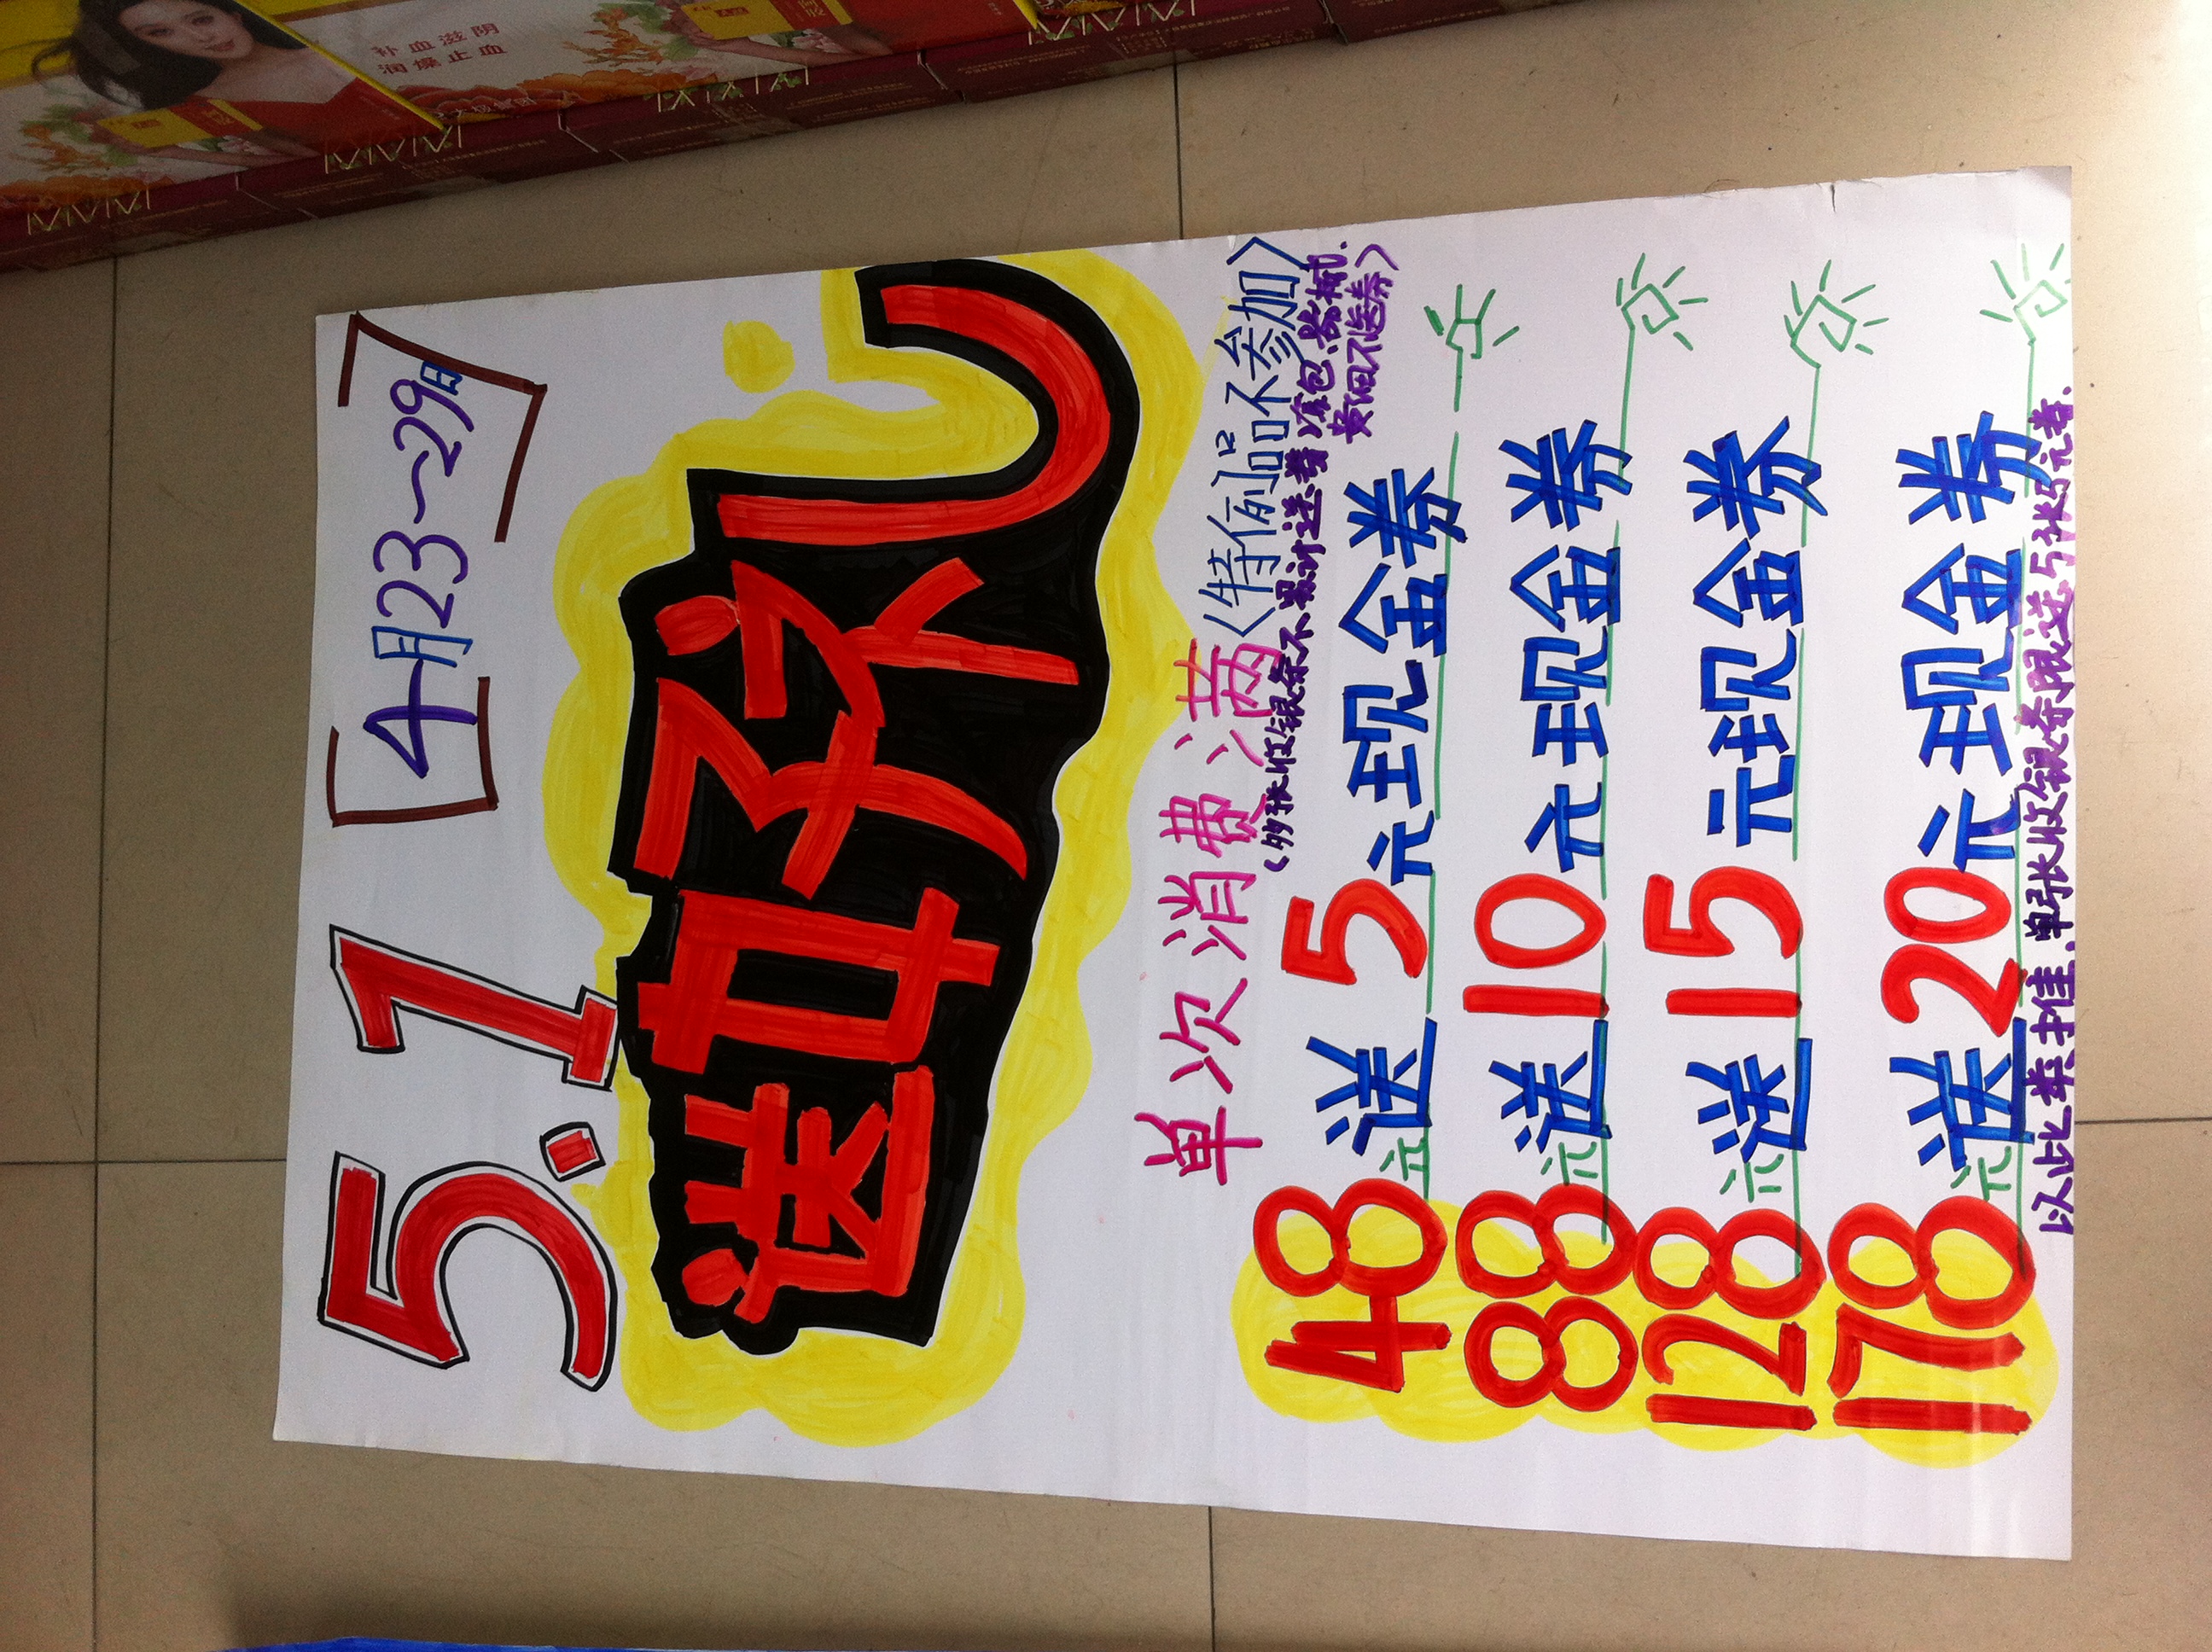 5.1
[4月23~29日]
送好礼
单次消费满〈特价品不参加〉
(多张收银条不累计送券) 冻包.器械.
黄四不送券〉
48元送5元现金券
88元送10元现金券
128元送15元现金券
178元送20元现金券
以此类推.单张收银条限送5张5元券.
补血滋阴
润燥止血